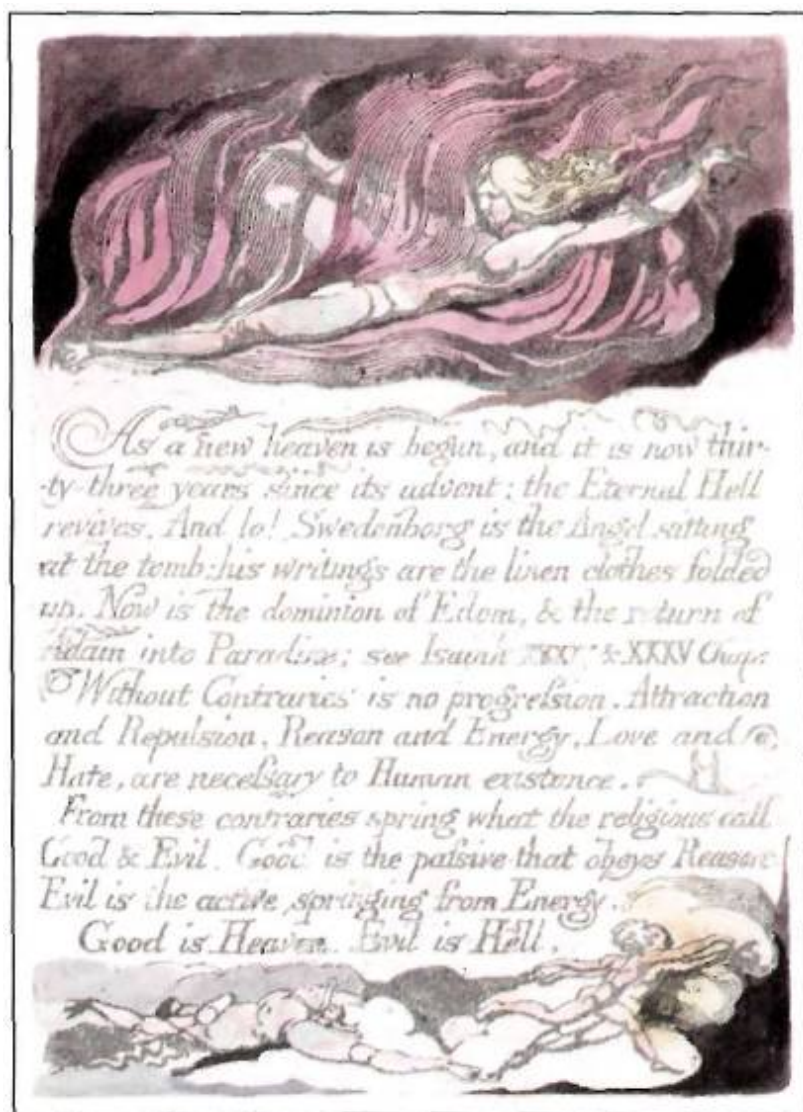 As a new heaven is begun, and it is now thir-
-ty-three years since its advent: the Eternal Hell
revives. And lo! Swedenborg is the Angel sitting
at the tomb: his writings are the linen clothes folded
up. Now is the dominion of Edom, & the return of
Adam into Paradise; see Isaiah & XXXV Chap:
Without Contraries is no progreſsion. Attraction
and Repulsion, Reason and Energy, Love and
Hate, are neceſsary to Human existence.
From these contraries spring what the religious call
Good & Evil. Good is the paſsive that obeys Reason
Evil is the active springing from Energy.
Good is Heaven. Evil is Hell.